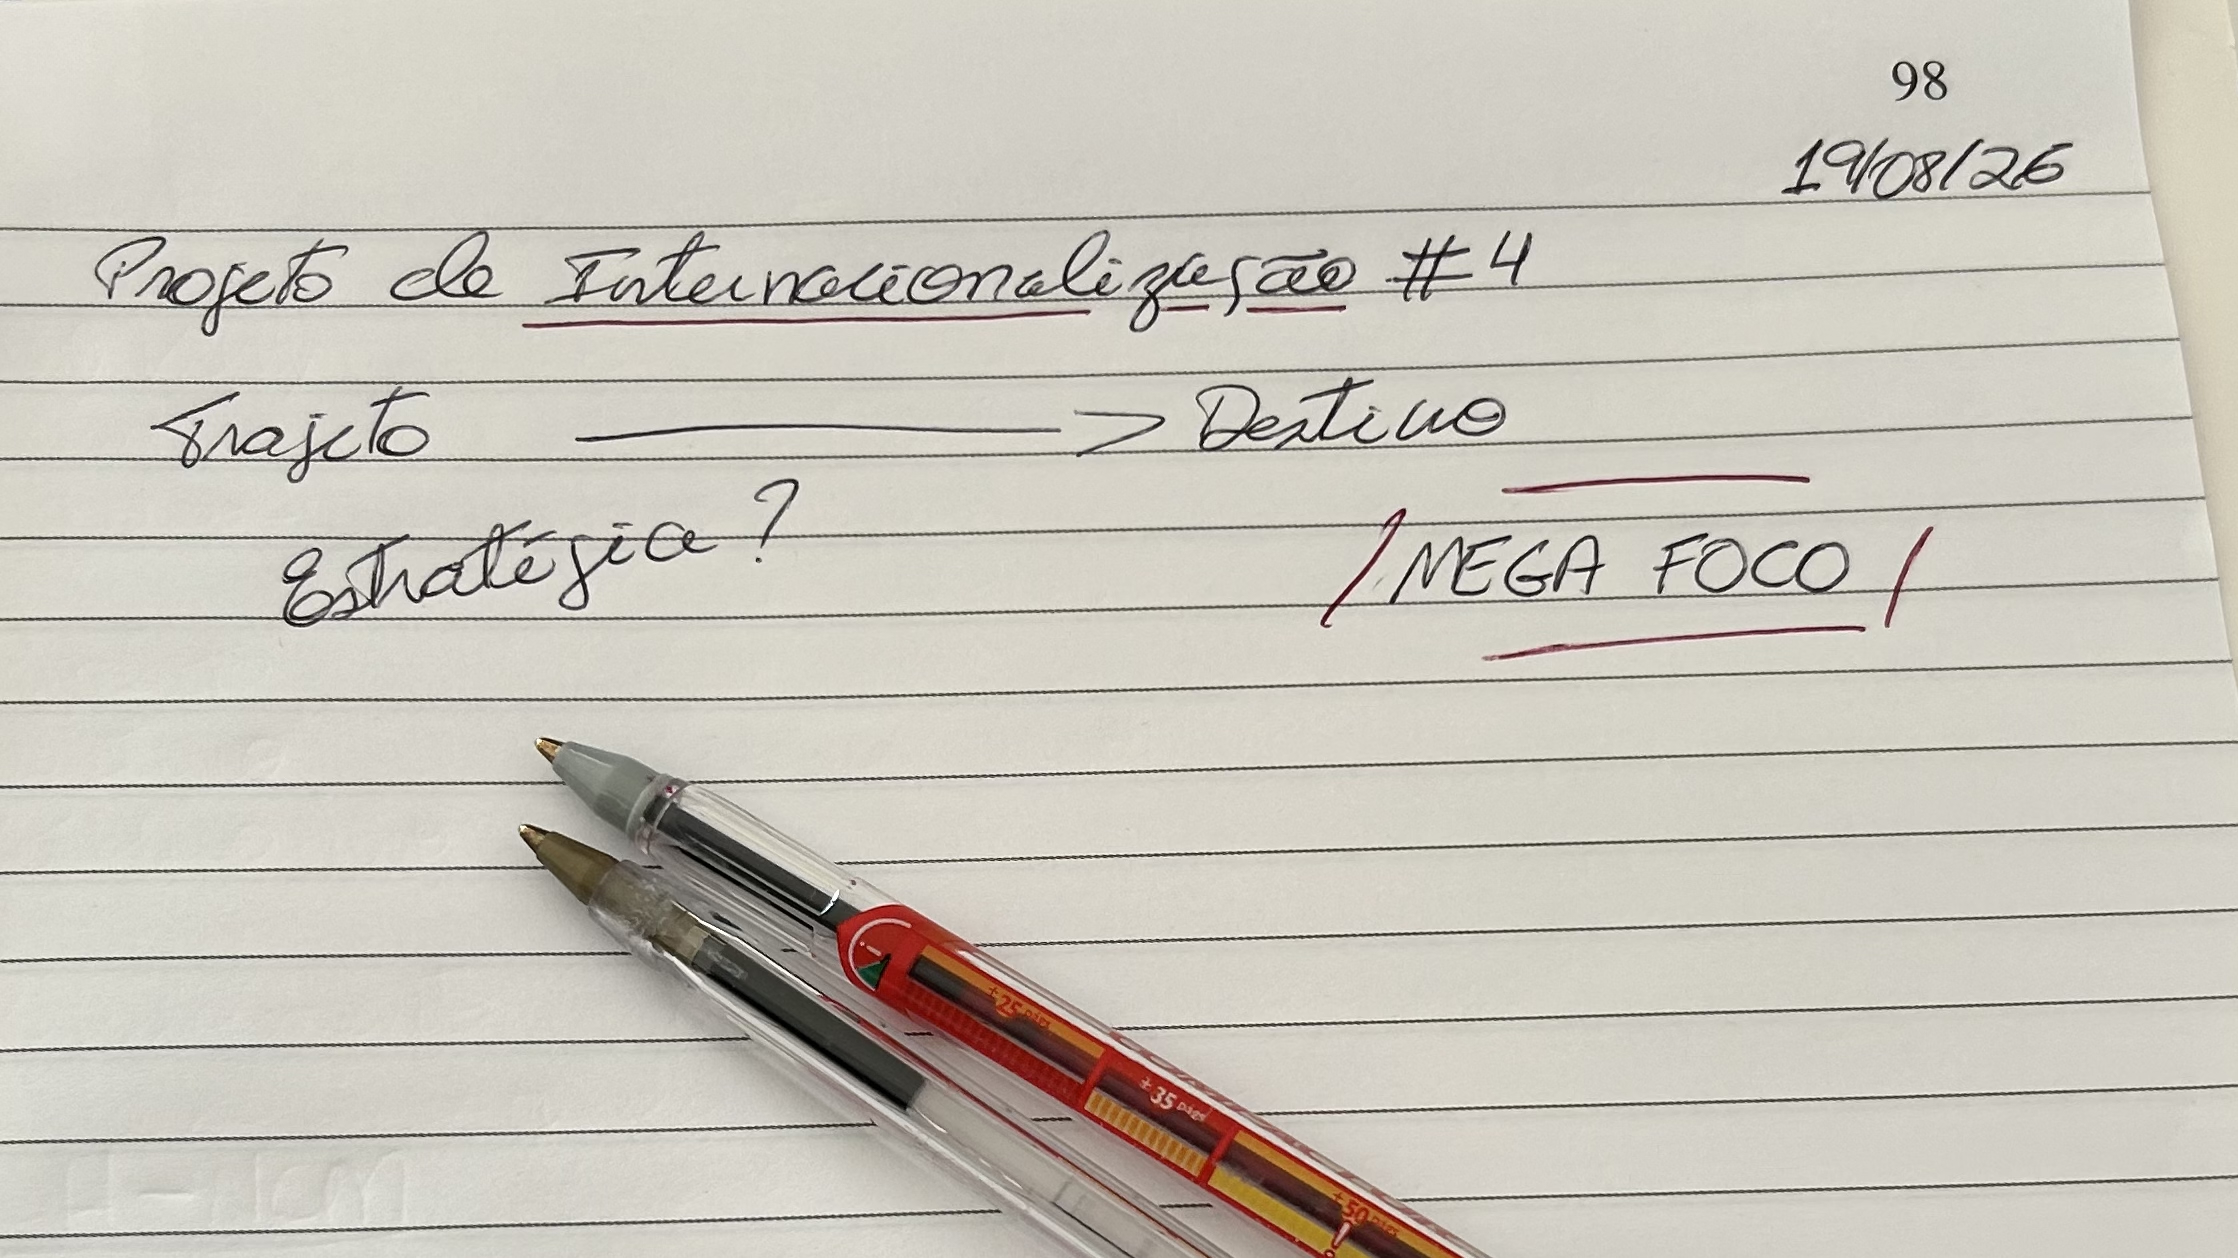 98
19/08/26
Projeto de Internacionalização #4
Trajeto ———> Destino
Estratégica?
MEGA FOCO
+25 pages
± 35 pages
+50 pages